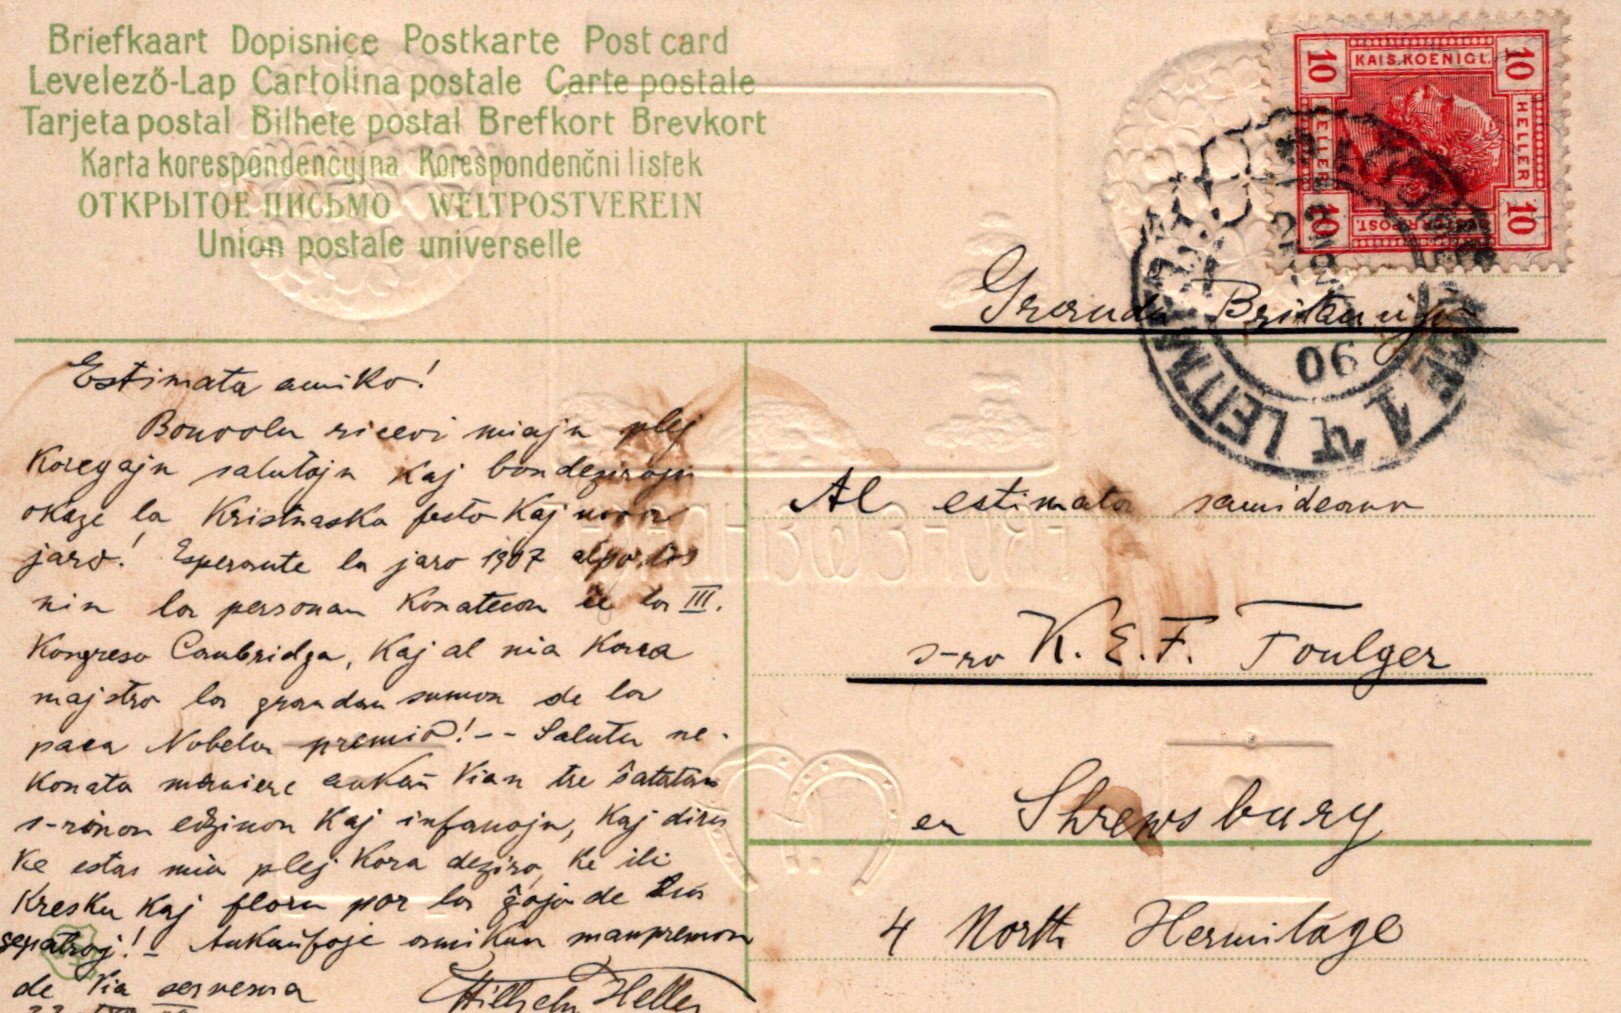 Briefkaart Dopisnice Postkarte Post card
Levelező-Lap Cartolina postale Carte postale
Tarjeta postal Bilhete postal Brefkort Brevkort
Karta korespondencyjna Korespondenčni listek
ОТКРЫТОЕ ПИСЬМО WELTPOSTVEREIN
Union postale universelle
10 KAIS. KOENIGL. 10
HELLER HELLER
10 10
LEITM
06
Granda Britanujo
Estimata amiko!
Bonvolu ricevi miajn plej
koregajn salutojn kaj bondezirojn
okaze la Kristnaska festo kaj nova
jaro! Esperante la jaro 1907 alportos
nin la personan konatecon ĉe la III.
Kongreso Cambridga, kaj al nia kara
majstro la grandan sumon de la
paca Nobela premio! -- Salutu ne-
konata maniere ankaŭ Vian tre ŝatatan
s-rinon edzinon kaj infanojn, kaj diru
ke estas mia plej kora deziro, ke ili
kresku kaj floru por la ĝojo de
gepatroj! - Ankaŭfoje amikan manpremon
de Via
Wilhelm Heller
Al estimata samideano
s-ro K. E. F. Toulger
en Shrewsbury
4 North Hermitage